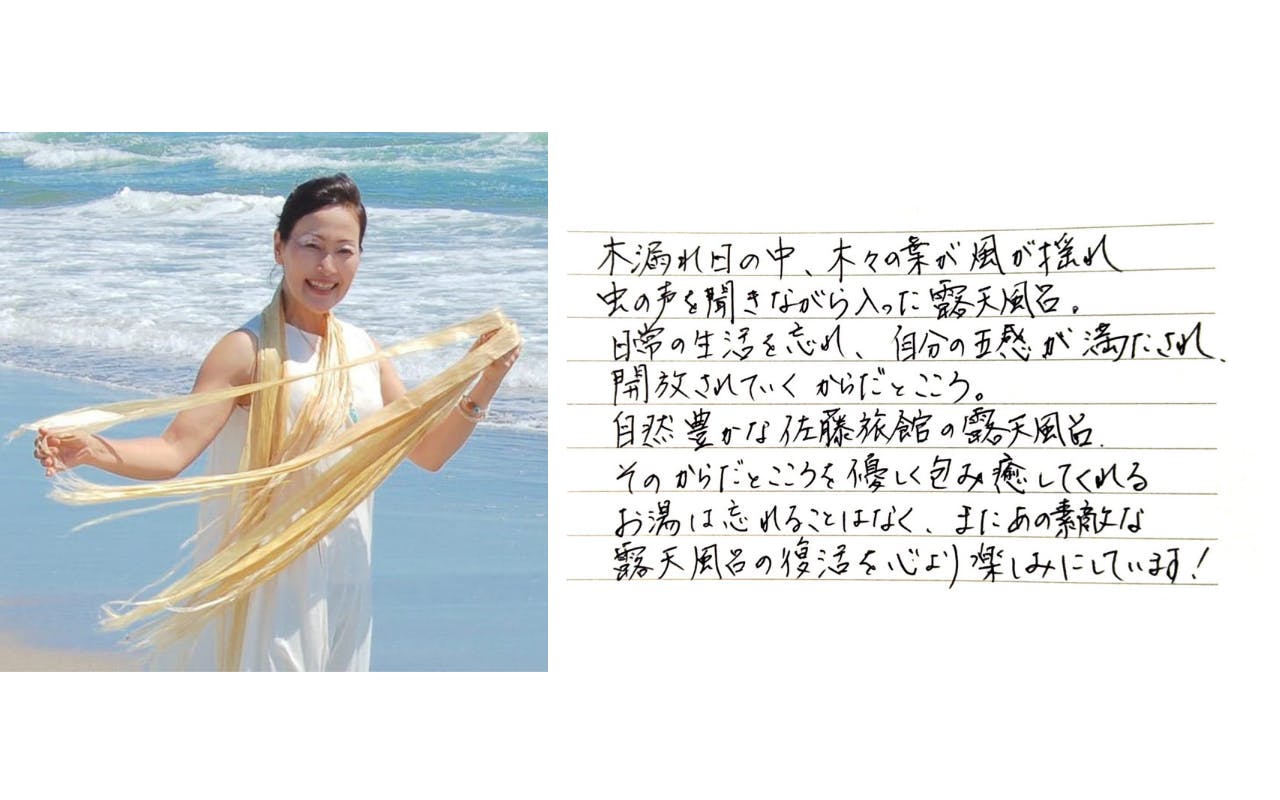 木漏れ日の中、木々の葉が風が揺れ
虫の声を聞きながら入った露天風呂。
日常の生活を忘れ、自分の五感が満たされ、
開放されていくからだところ。
自然豊かな佐藤旅館の露天風呂、
そのからだとこころを優しく包み癒してくれる
お湯は忘れることはなく、またあの素敵な
露天風呂の復活を心より楽しみにしています!